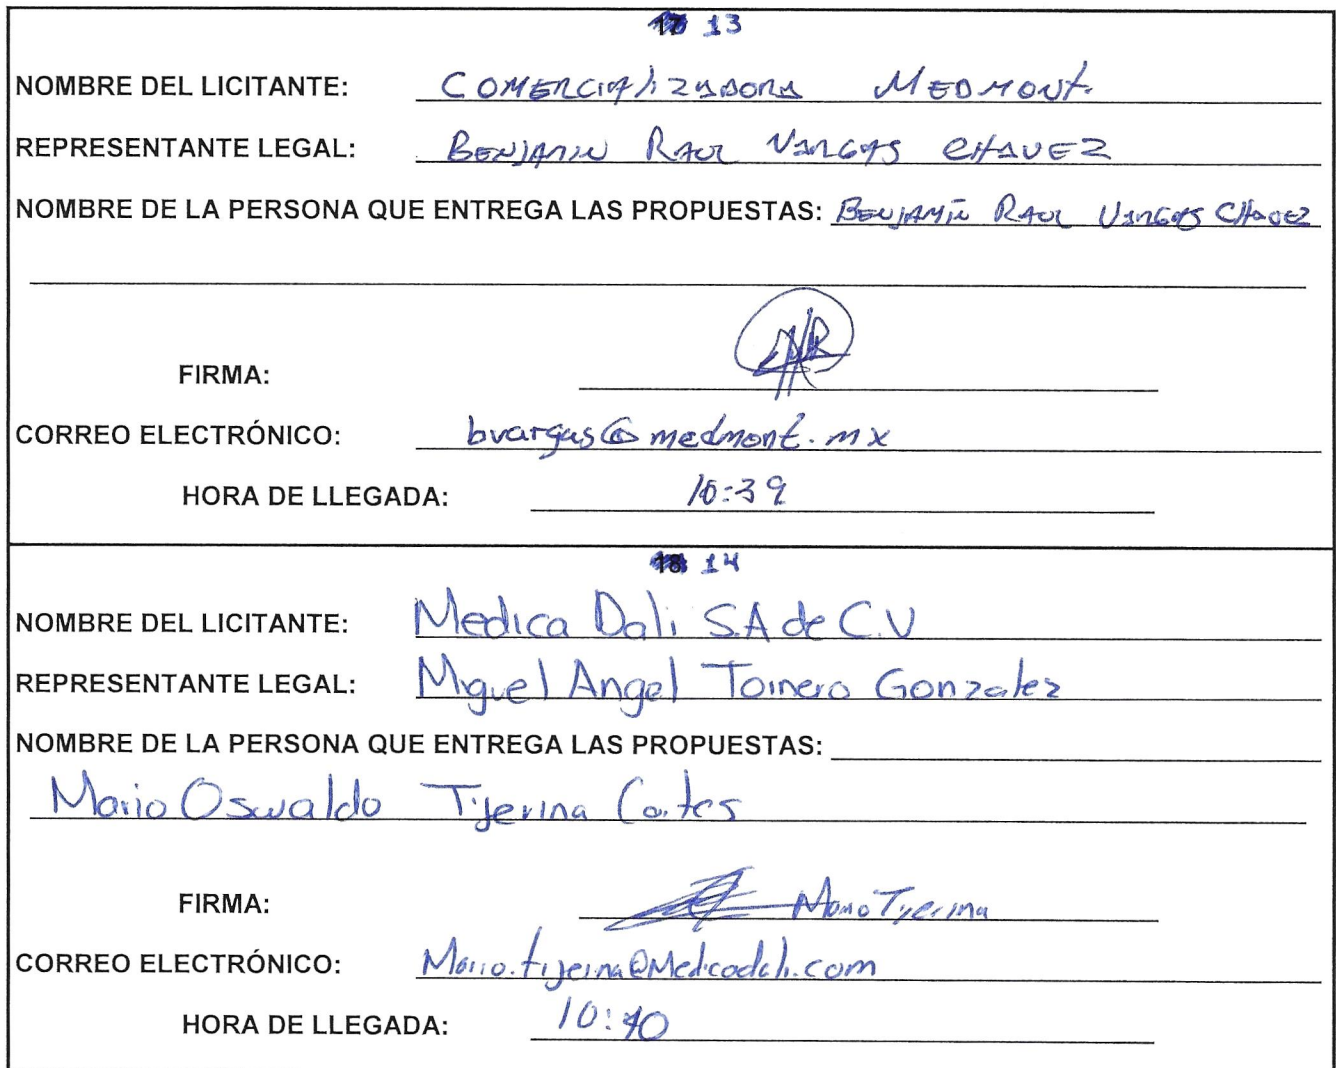 17 13
NOMBRE DEL LICITANTE: COMERCIAlizADORA MEDMONT.
REPRESENTANTE LEGAL: BENJAMIN RAUL VARGAS CHAVEZ
NOMBRE DE LA PERSONA QUE ENTREGA LAS PROPUESTAS: BENJAMÍN RAUL VARGAS CHAVEZ
FIRMA:
CORREO ELECTRÓNICO: bvargas@medmont.mx
HORA DE LLEGADA: 10:39
18 14
NOMBRE DEL LICITANTE: Medica Dali S.A de C.V
REPRESENTANTE LEGAL: Miguel Angel Tornero Gonzalez
NOMBRE DE LA PERSONA QUE ENTREGA LAS PROPUESTAS:
Mario Oswaldo Tijerina Cortes
FIRMA: Mario Tijerina
CORREO ELECTRÓNICO: Mario.tijerina@Medicadali.com
HORA DE LLEGADA: 10:40